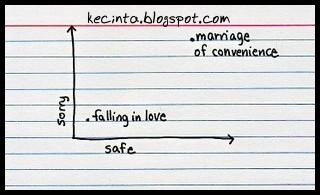 kecinta.blogspot.com
.marriage
of convenience
sorry
.falling in love
safe